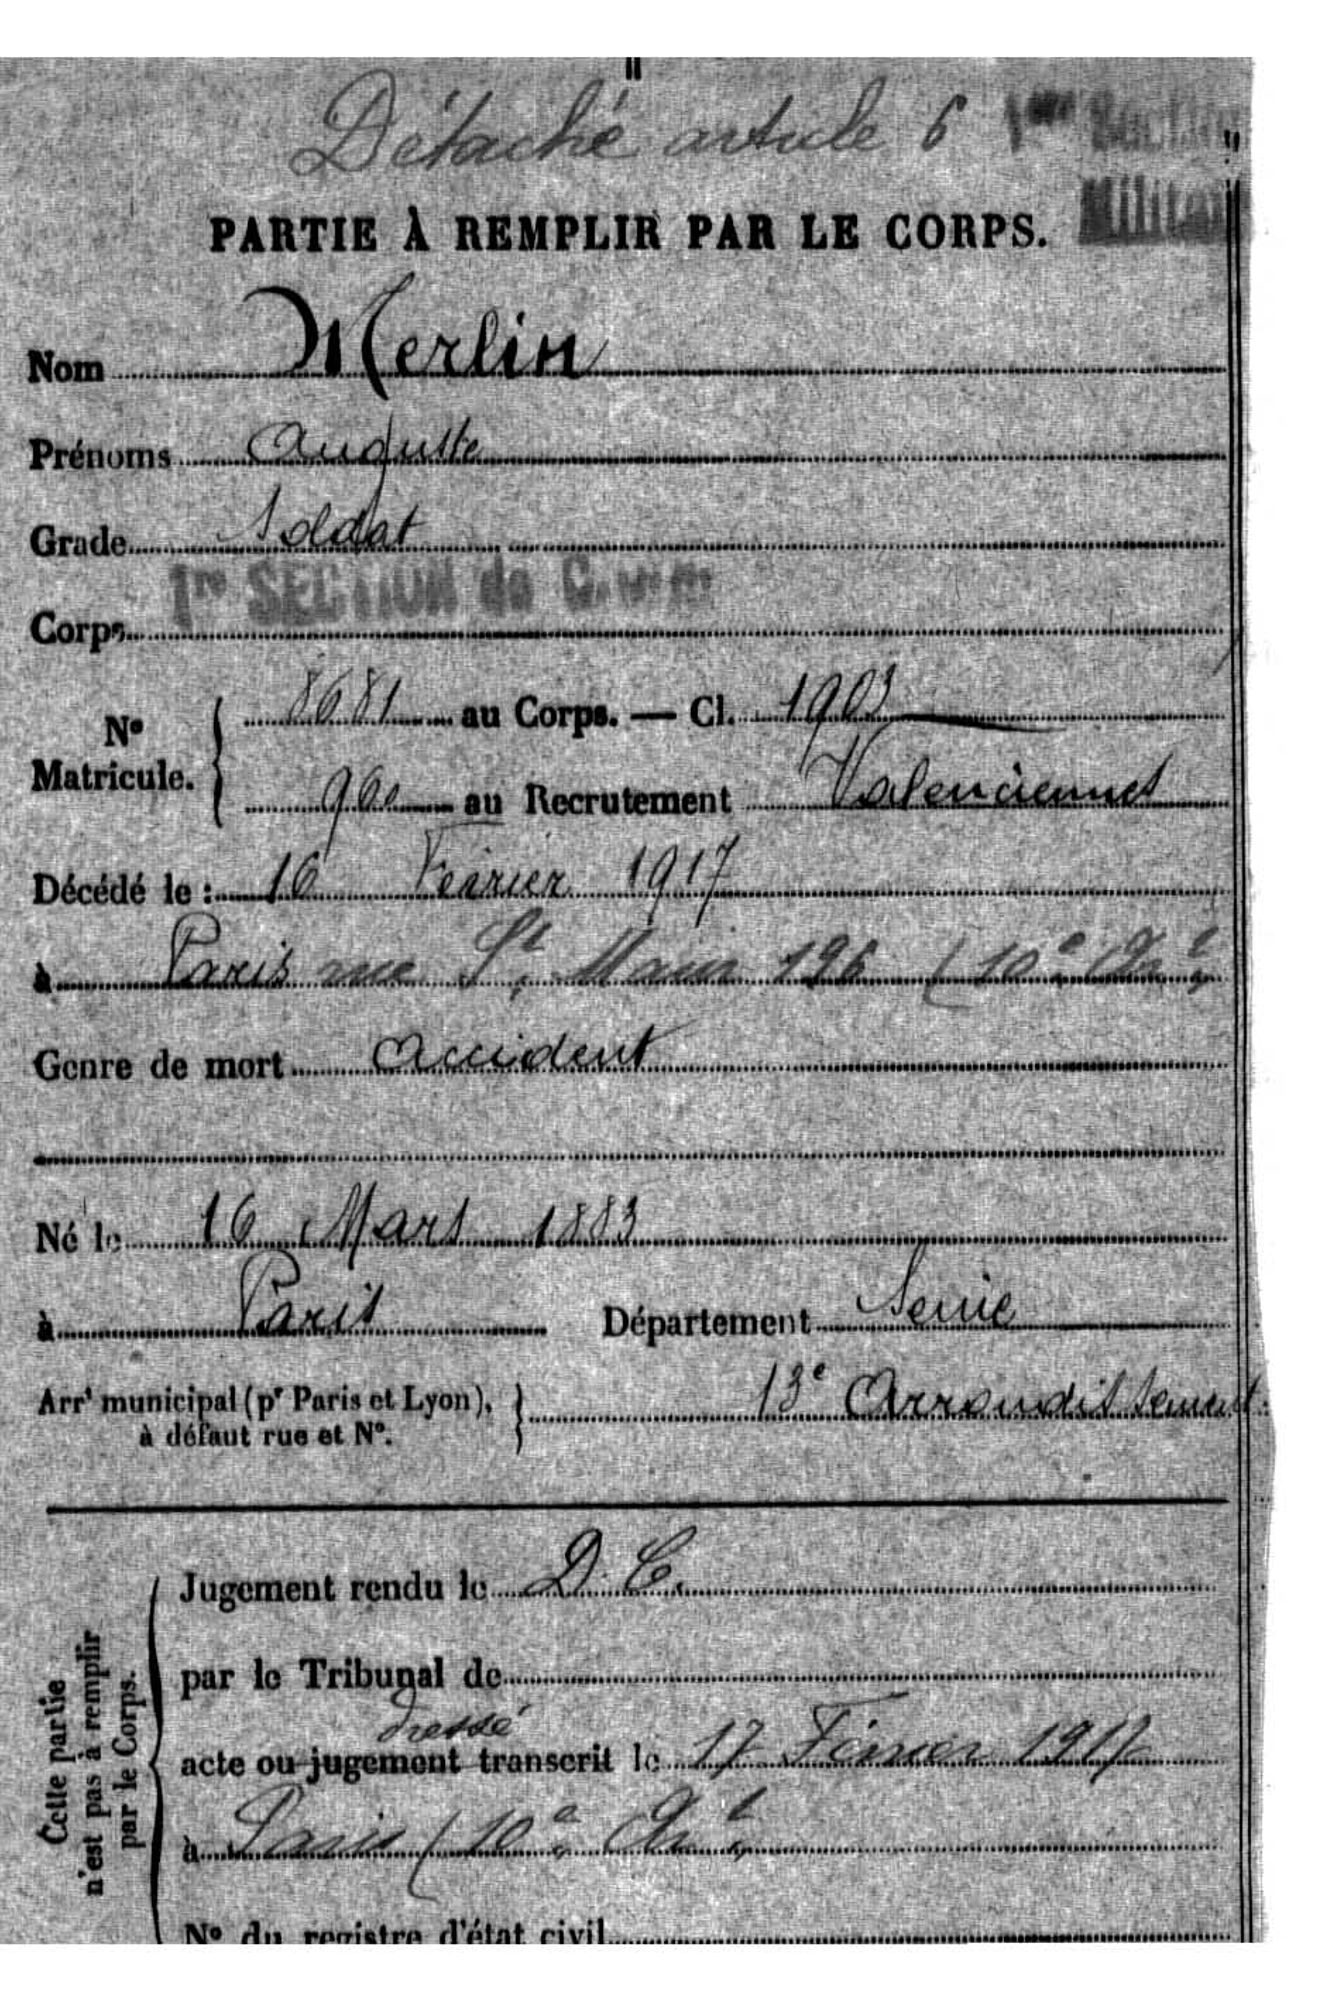 Détaché article 6 1ère Section
Militai
PARTIE À REMPLIR PAR LE CORPS.
Nom Merlin
Prénoms Auguste
Grade Soldat
1re SECTION de C.O.M.
Corps
No Matricule. { 8681 au Corps. — Cl. 1903
960 au Recrutement Valenciennes
Décédé le : 16 Février 1917
à Paris rue St. Maur 196 (10e Arrt
Genre de mort Accident
Né le 16 Mars 1883
à Paris Département Seine
Arrt municipal (pr Paris et Lyon), } 13e Arrondissement
à défaut rue et No.
Cette partie n'est pas à remplir par le Corps.
Jugement rendu le D. C.
par le Tribunal de
dressé
acte ou jugement transcrit le 17 Février 1917
à Paris (10e Arrt
No du registre d'état civil